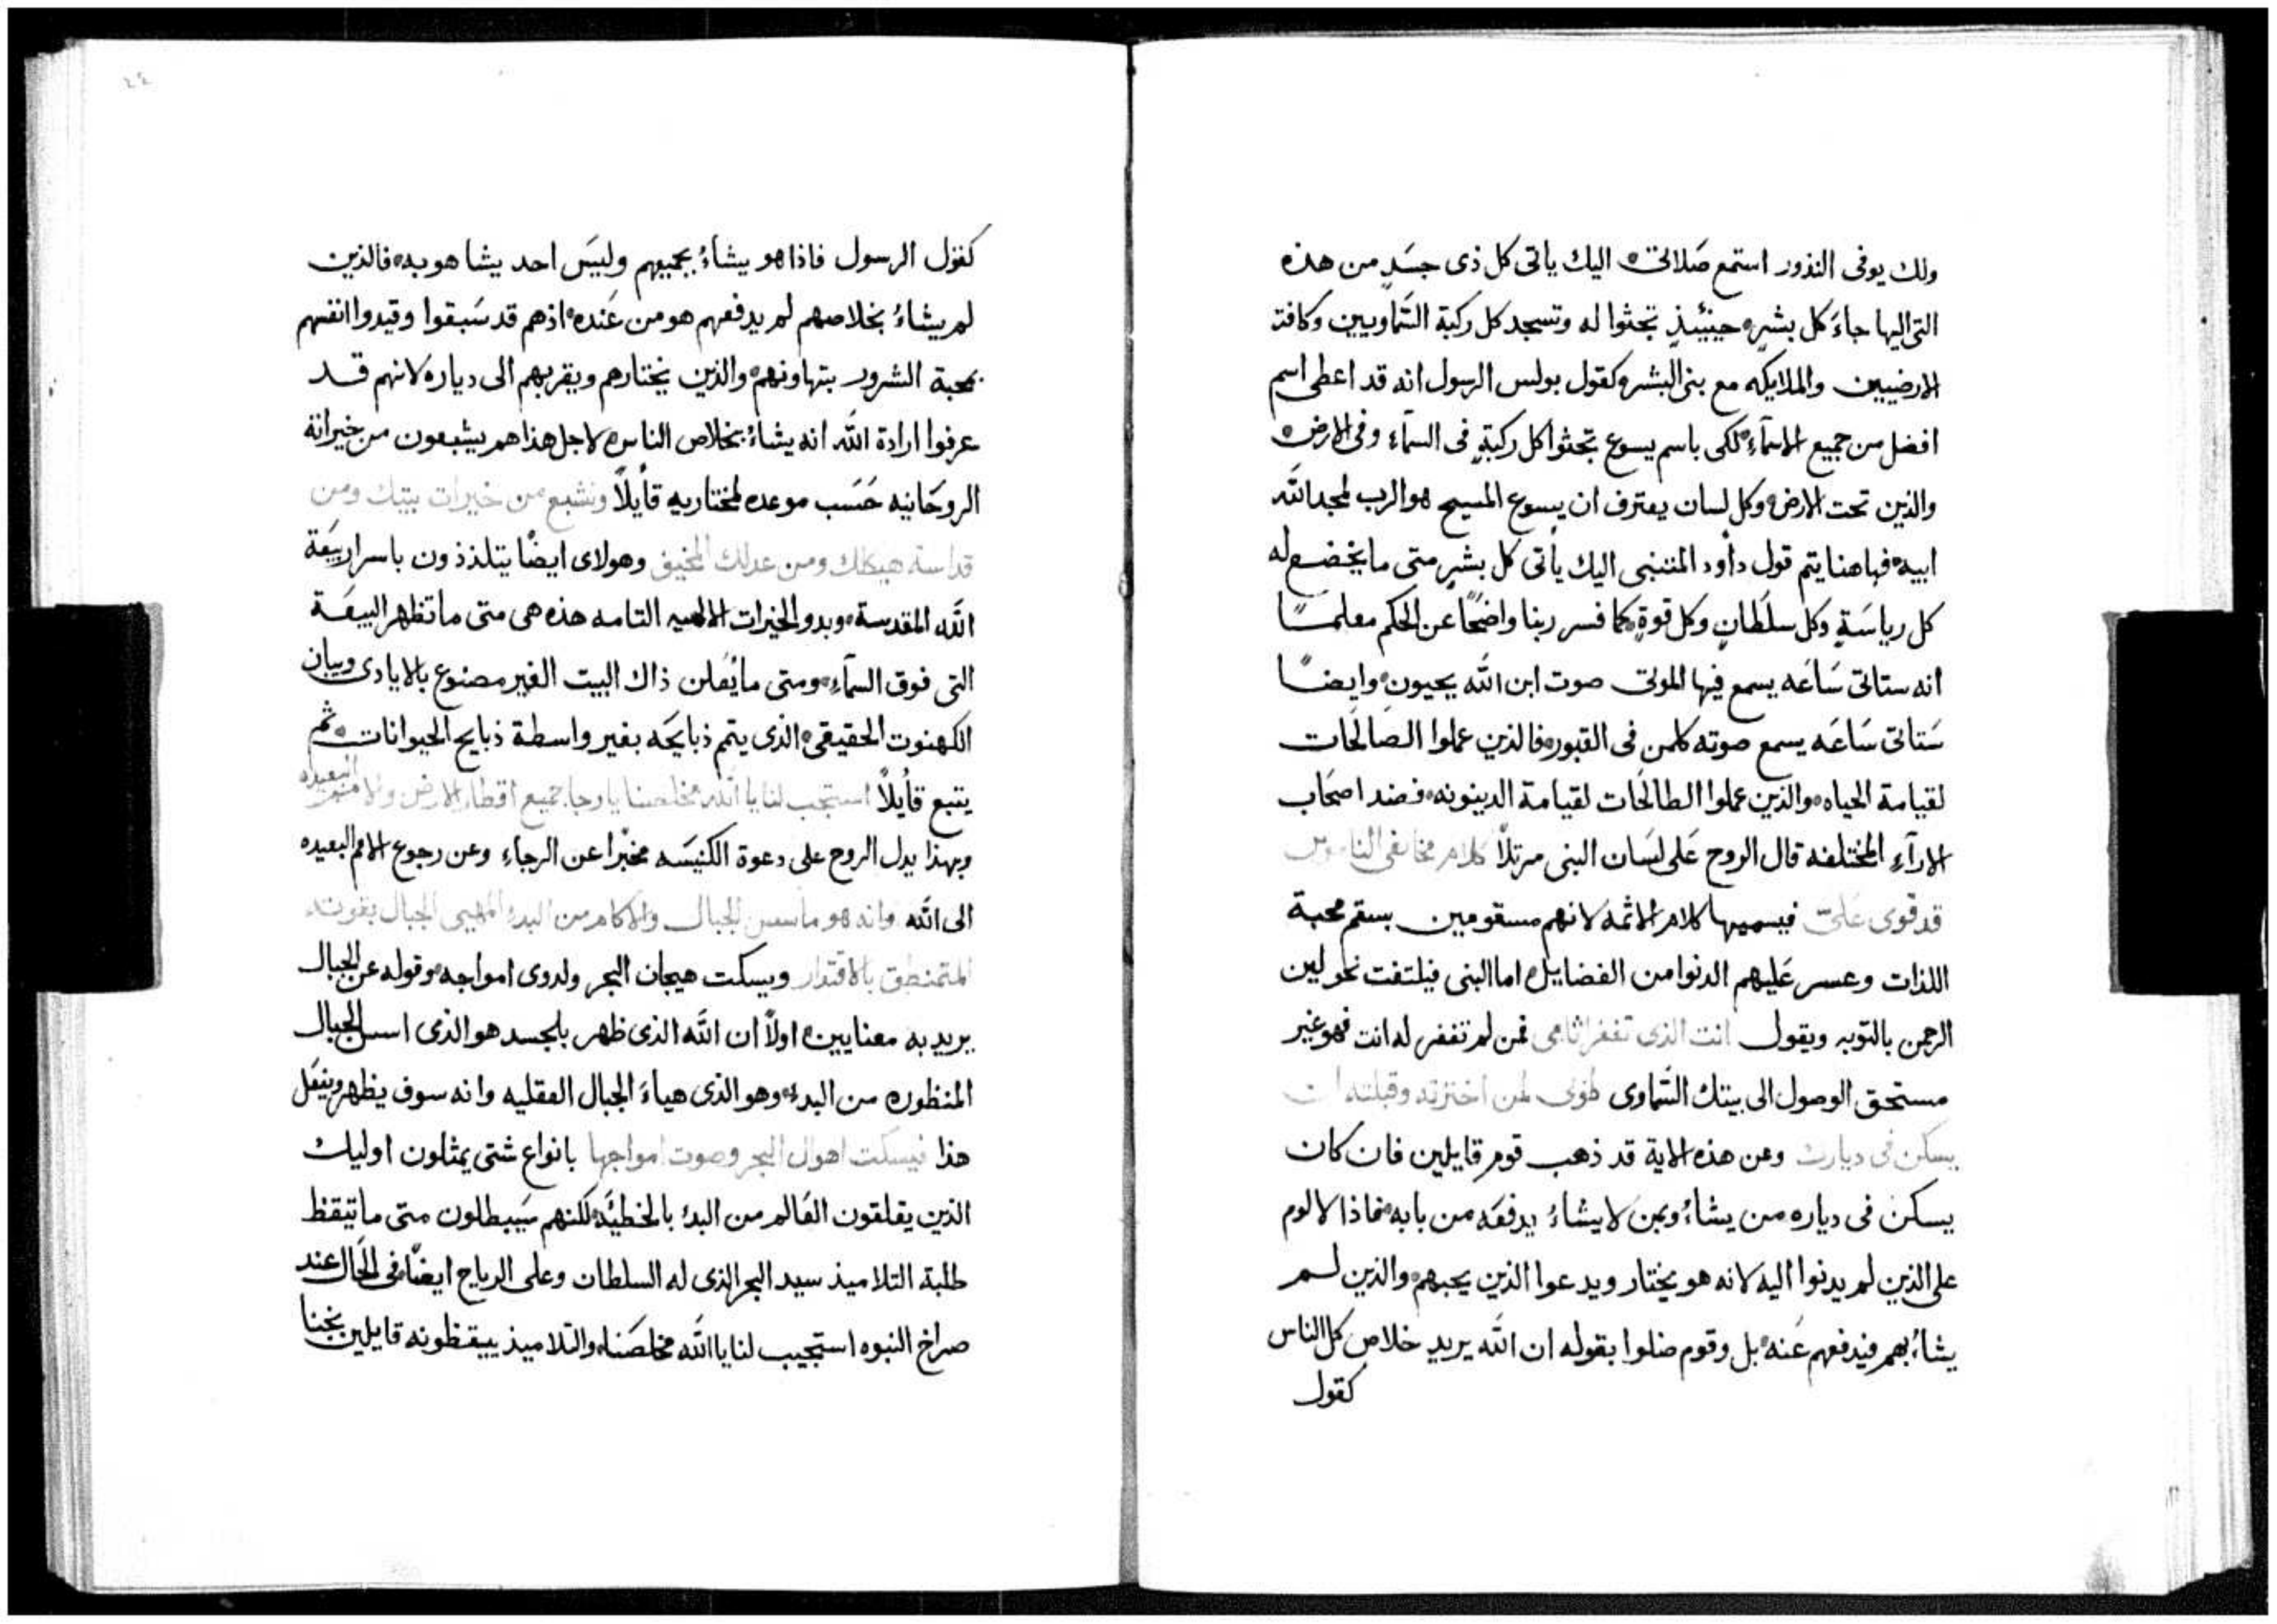 ولك يوفى النذور استمع صَلاتى ه اليك ياتى كل ذى جسَدٍ من هذه
التى اليها جاءَ كل بشرٍ ه حينئيذٍ تجثوا له وتسجد كل ركبة السَّماويين وكافت
الارضيين والملايكه مع بنى البشر وكقول بولس الرسول انه قد اعطى اسم
افضل من جميع الاسمآءِ لكى باسم يسوع تجثوا كل ركبةٍ فى السمآءِ وفى الارض ه
والذين تحت الارض ه وكل لسان يعترف ان يسوع المسيح هو الرب لمجد اللَّه
ابيه ه فهاهنا يتم قول دأود المتنبى اليك يأتى كل بشرٍ متى ما يخضع له
كل رياسَةٍ وكل سلطَانٍ وكل قوةٍ ه كما فسر ربنا واضحًا عن الحكم معلمًا
انه ستاتى سَاعَه يسمع فيها الموتى صوت ابن اللَّه يحيون ه وايضًا
سَتاتى سَاعَه يسمع صوته كلمن فى القبور ه فالذين عملوا الصَالحَات
لقيامة الحياه ه والذين عملوا الطالحَات لقيامة الدينونه ه فضد اصحَاب
الارآءِ المختلفه قال الروح عَلى لسَان النبى مرتلاً كلام مخالفى الناموس
قد قوى عَلىّ فيسميها كلام الاثمه لانهم مسقومين بسقم محبة
اللذات وعسر عَليهم الدنوا من الفضايل ه اما النبى فيلتفت نحو لين
الرحمن بالتوبه ويقول انت الذى تغفر اثامى فمن لم تغفر له انت فهو غير
مستحق الوصول الى بيتك السَّماوى طوبى لمن اخترته وقبلته
يسكن فى ديارك وعن هذه الاية قد ذهب قوم قايلين فان كان
يسكن فى دياره من يشاءُ وبمن لا يشاءُ يدفعَه من بابه ه فماذا لا لوم
على الذين لم يدنوا اليه لانه هو يختار ويدعوا الذين يحبهم ه والذين لم
يشاءُ بهم فيدفعهم عَنه ه بل وقوم ضلوا بقوله ان اللَّه يريد خلاص كل الناس
كقول
كقول الرسول فاذا هو يشاءُ يجيبهم وليسَ احد يشا هو به ه فالذين
لم يشاءُ بخلاصهم لم يدفعهم هو من عَنده ه اذ هم قد سَبقوا وقيدوا انفسهم
بمحبة الشرور بتهاونهم ه والذين يختارهم ويقربهم الى دياره لانهم قد
عرفوا ارادة اللَّه انه يشاءُ بخلاص الناس ه لاجل هذا هم يشبعون من خيراته
الروحَانيه حَسَب موعده لمختاريه قأيلاً ونشبع من خيرات بيتك ومن
قداسة هيكلك ومن عدلك المخيف وهولاى ايضًا يتلذذون باسرار بيعَة
اللَّه المقدسة ه وبدو الخيرات الالهيه التامه هذه هى متى ما تظهر البيعَة
التى فوق السمآءِ ه ومتى ما يُعَلن ذاك البيت الغير مصنوع بالايادى وبيان
الكهنوت الحقيقى ه الذى يتم ذبايحَه بغير واسطة ذبايح الحيوانات ه ثم
يتبع قأيلاً استجب لنا يا اللَّه مخلصنا يا رجا جميع اقطار الارض والامم البعيده
وبهذا يدل الروح على دعوة الكنيسَه مخبرًا عن الرجاءِ وعن رجوع الامم البعيده
الى اللَّه وانه هو ماسس الجبال والاكام من البدءُ المهيى الجبال بقوته
المتمنطق بالاقتدار ويسكت هيجان البحر ولدوى امواجه ه وقوله عن الجبال
يريد به معنايين ه اولاً ان اللَّه الذى ظهر بالجسد هو الذى اسس الجبال
المنظوره من البدءُ ه وهو الذى هياءَ الجبال العقليه وانه سوف يظهر وينعَل
هذا فيسكت اهوال البحر وصوت امواجها بانواع شتى يمثلون اوليك
الذين يقلقون العَالم من البدءُ بالخطيَّه لكنهم سَيبطلون متى ما تيقظ
طلبة التلاميذ سيد البحر الذى له السلطان وعلى الرياح ايضًا ه فى الحَال عند
صراخ النبوه استجيب لنا يا اللَّه مخلصَنا ه والتلاميذ ييقظونه قايلين نجنا